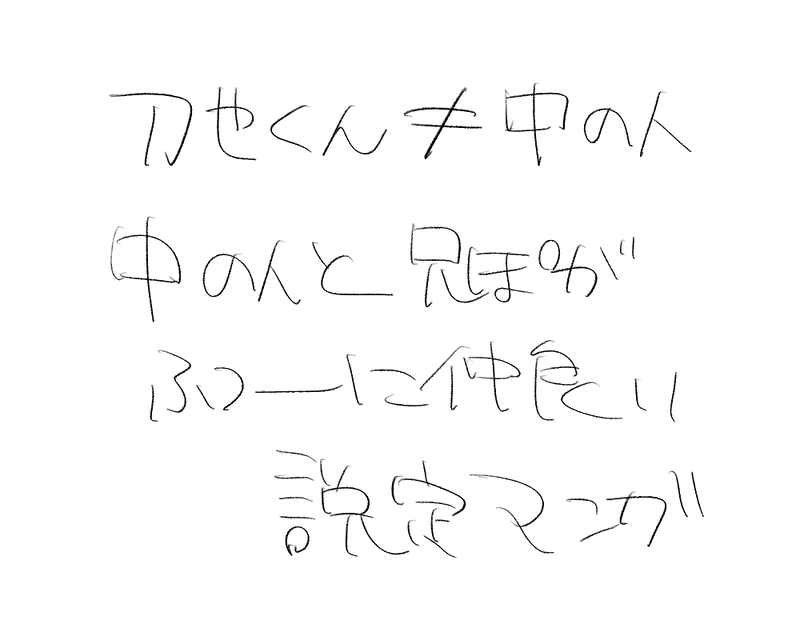 刀也くん≠中の人
中の人と兄ぽが
ふつーに仲良い
設定マンガ